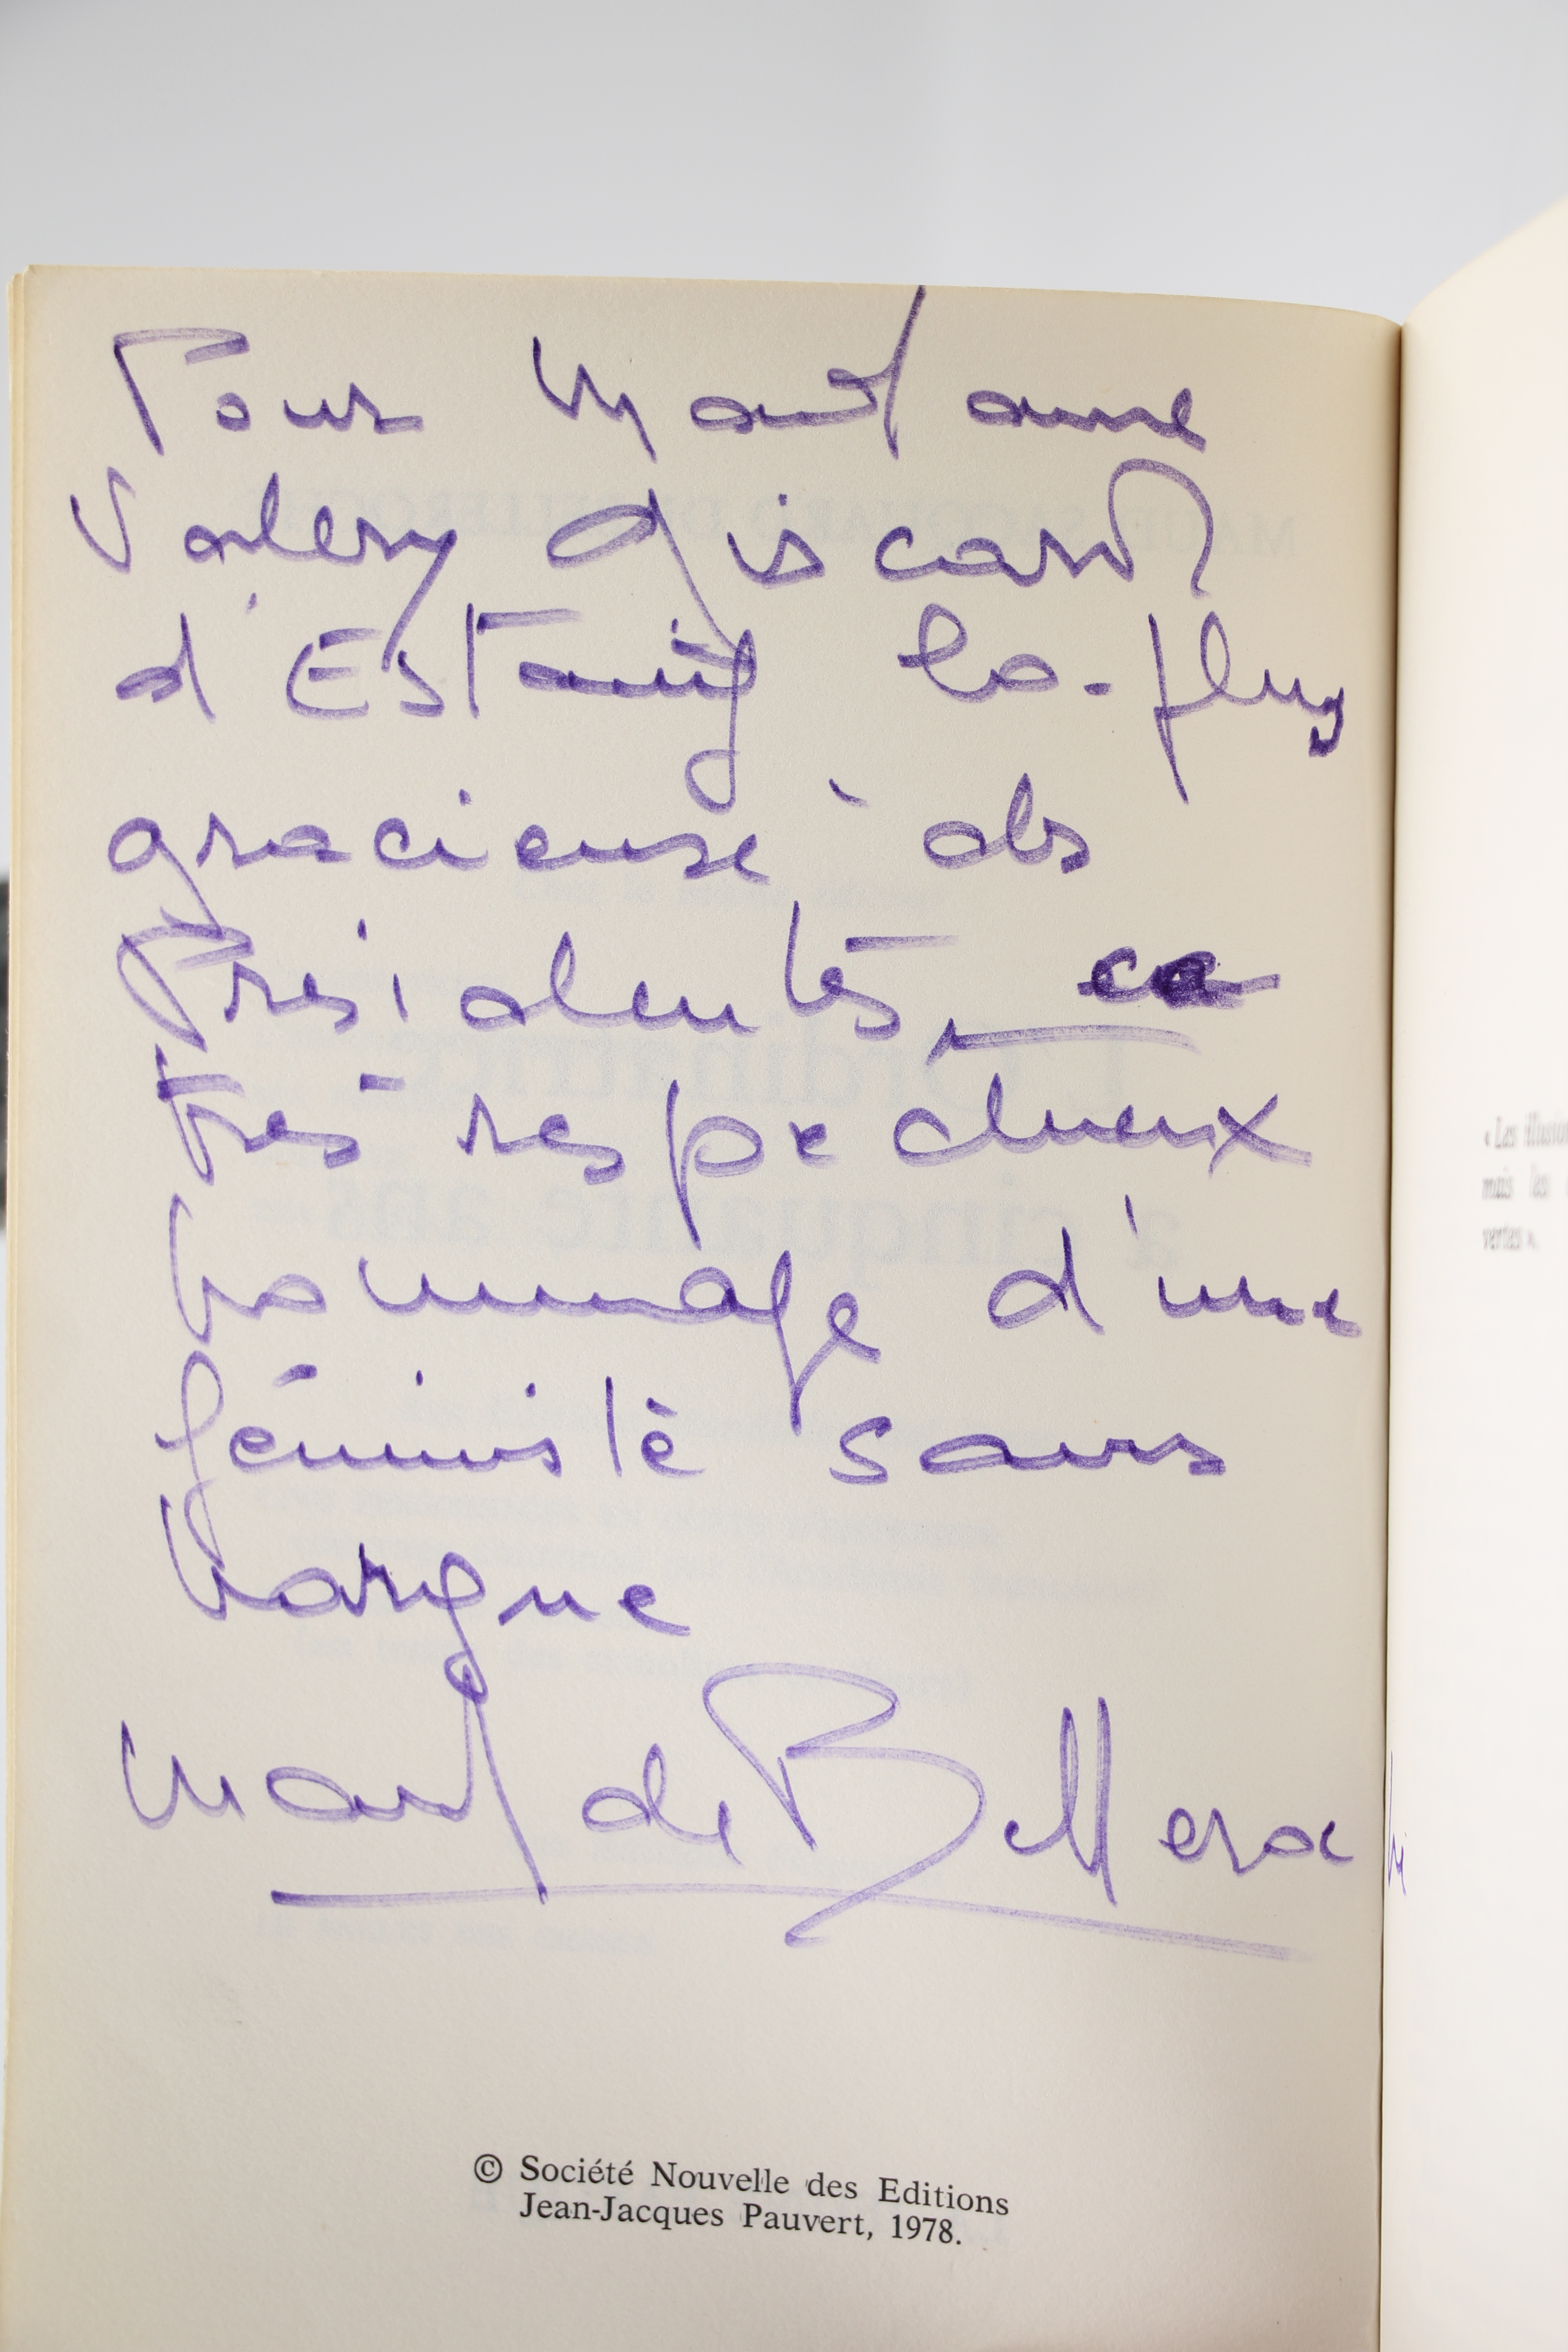 Pour Madame
Valery Giscard
d'Estaing la plus
gracieuse des
Présidentes, ce
très respectueux
hommage d'une
féministe sans
hargne
Maud de Belleroche
© Société Nouvelle des Editions
Jean-Jacques Pauvert, 1978.
« Les
mais les
vertes ».